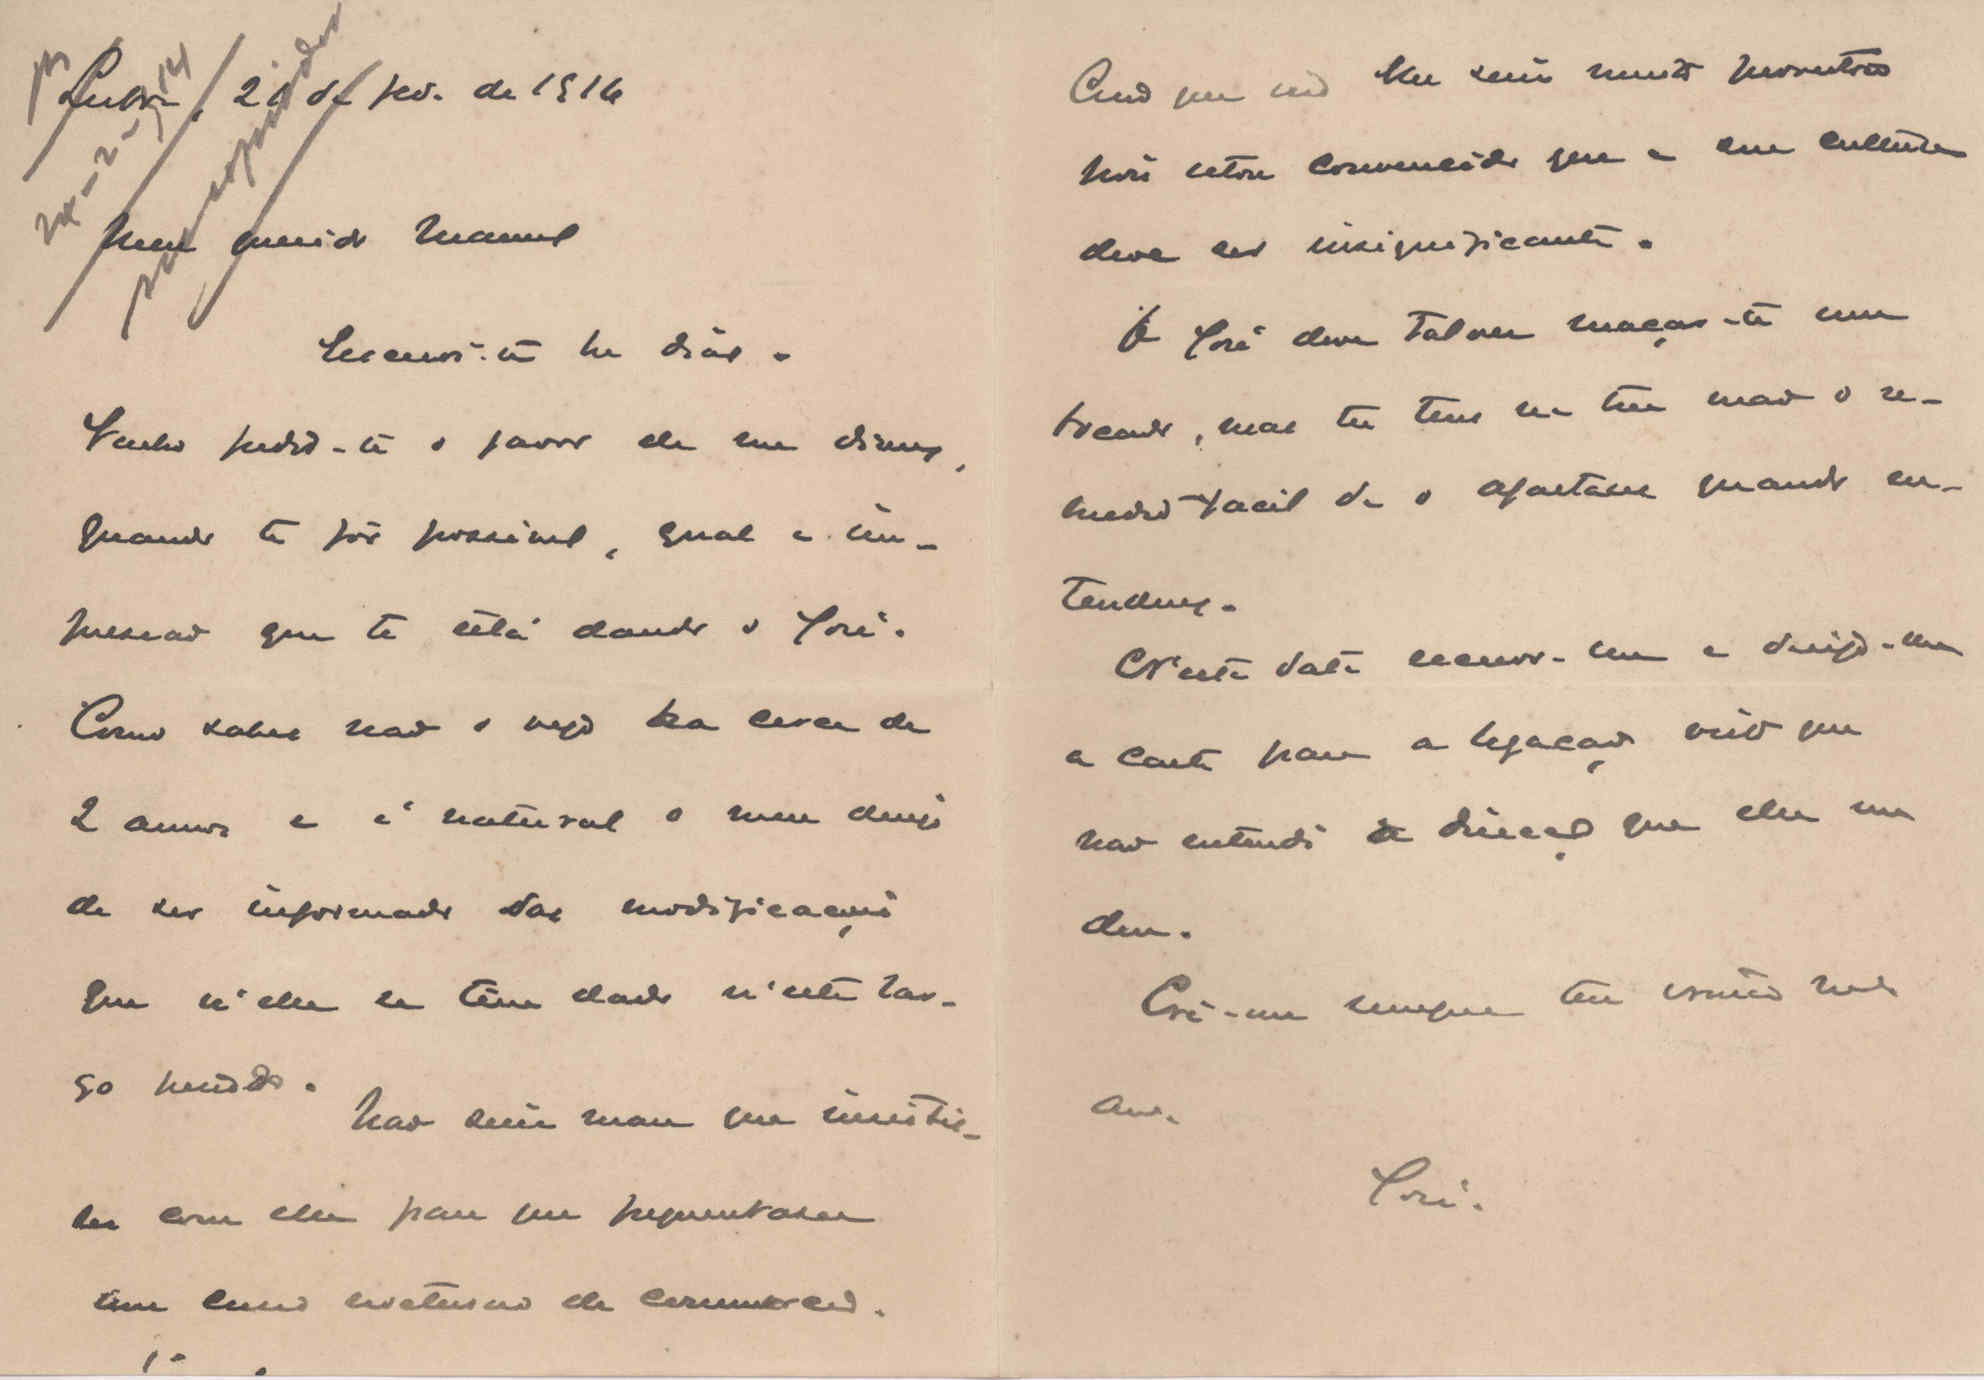 Lisboa, 20 de fev. de 1914
24-2-914
por copiador
Meu querido Manuel
Escrevi-te ha dias.
Venho pedir-te o favor de me dizeres,
quando te fôr possivel, qual a im-
pressao que te está dando o José.
Como sabes nao o vejo ha cerca de
2 annos e é natural o meu desejo
de ser informado das modificações
que n'elle se têm dado n'este lar-
go periodo.
Nao seria mau que insistis-
se com elle para que frequentasse
um curso nocturno de commercio.
Creio que isso lhe seria muito proveitoso
pois estou convencido que a sua cultura
deve ser insignificante.
O José deve talvez maçar-te um
bocado, mas tu tens na tua mao o re-
medio facil de o afastares quando en-
tenderes.
N'esta data escrevo-lhe e dirijo-lhe
a carta para a legaçao visto que
nao entendi a direcçao que elle me
deu.
Crê-me sempre teu irmão mto
amo.
José.